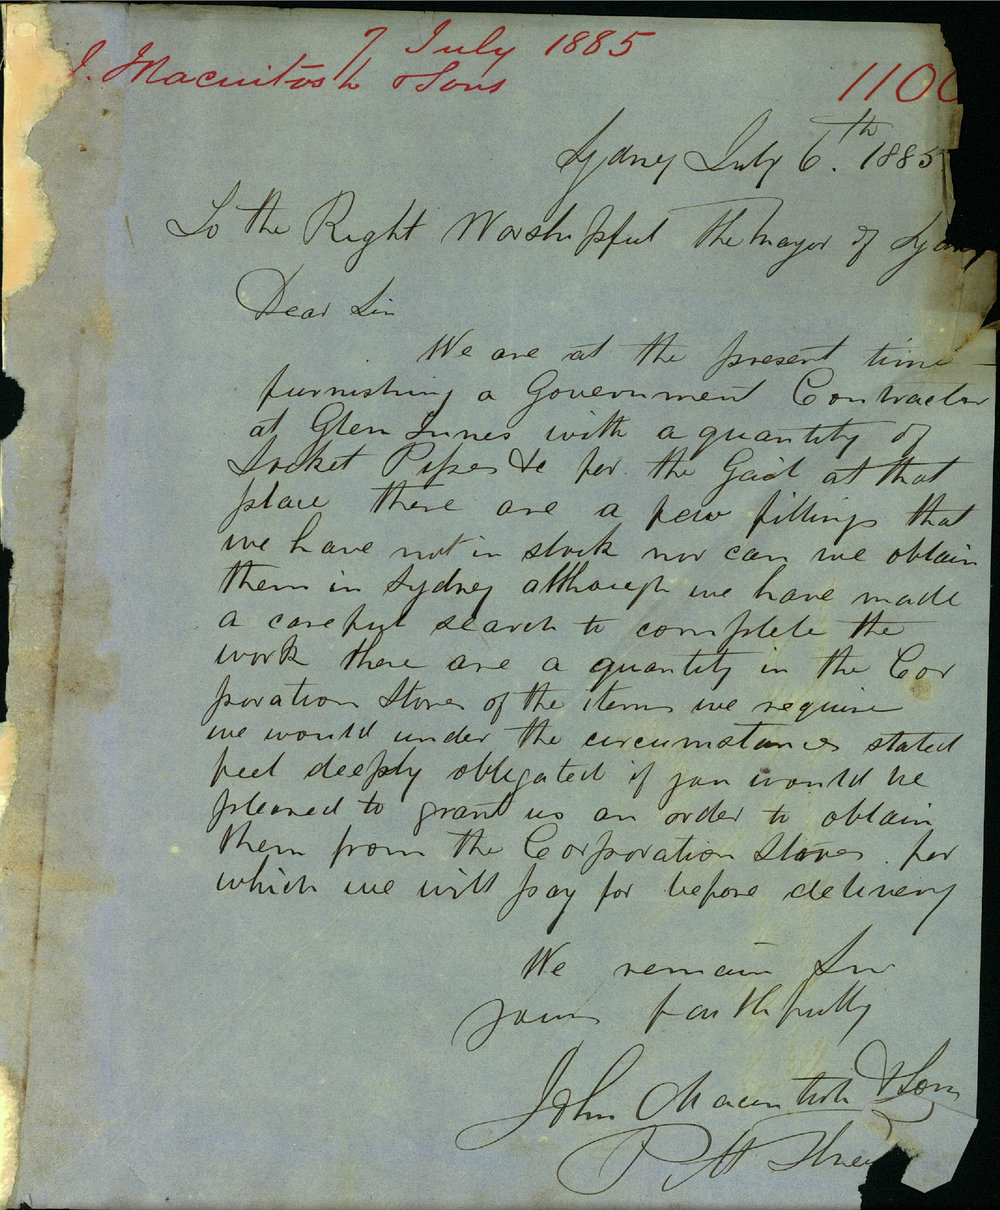 7 July 1885
J. Macintosh & Sons
1100
Sydney July 6th. 1885
To the Right Worshipful The Mayor of Sydney
Dear Sir
We are at the present time
furnishing a Government Contractor
at Glen Innes with a quantity of
Socket Pipes &c for the Gaol at that
place there are a few fittings that
we have not in stock nor can we obtain
them in Sydney although we have made
a careful search to complete the
work there are a quantity in the Cor
poration Stores of the items we require
we would under the circumstances stated
feel deeply obligated if you would be
pleased to grant us an order to obtain
them from the Corporation Stores for
which we will pay for before delivery
We remain Sir
yours faithfully
John Macintosh & Sons
Pitt Street